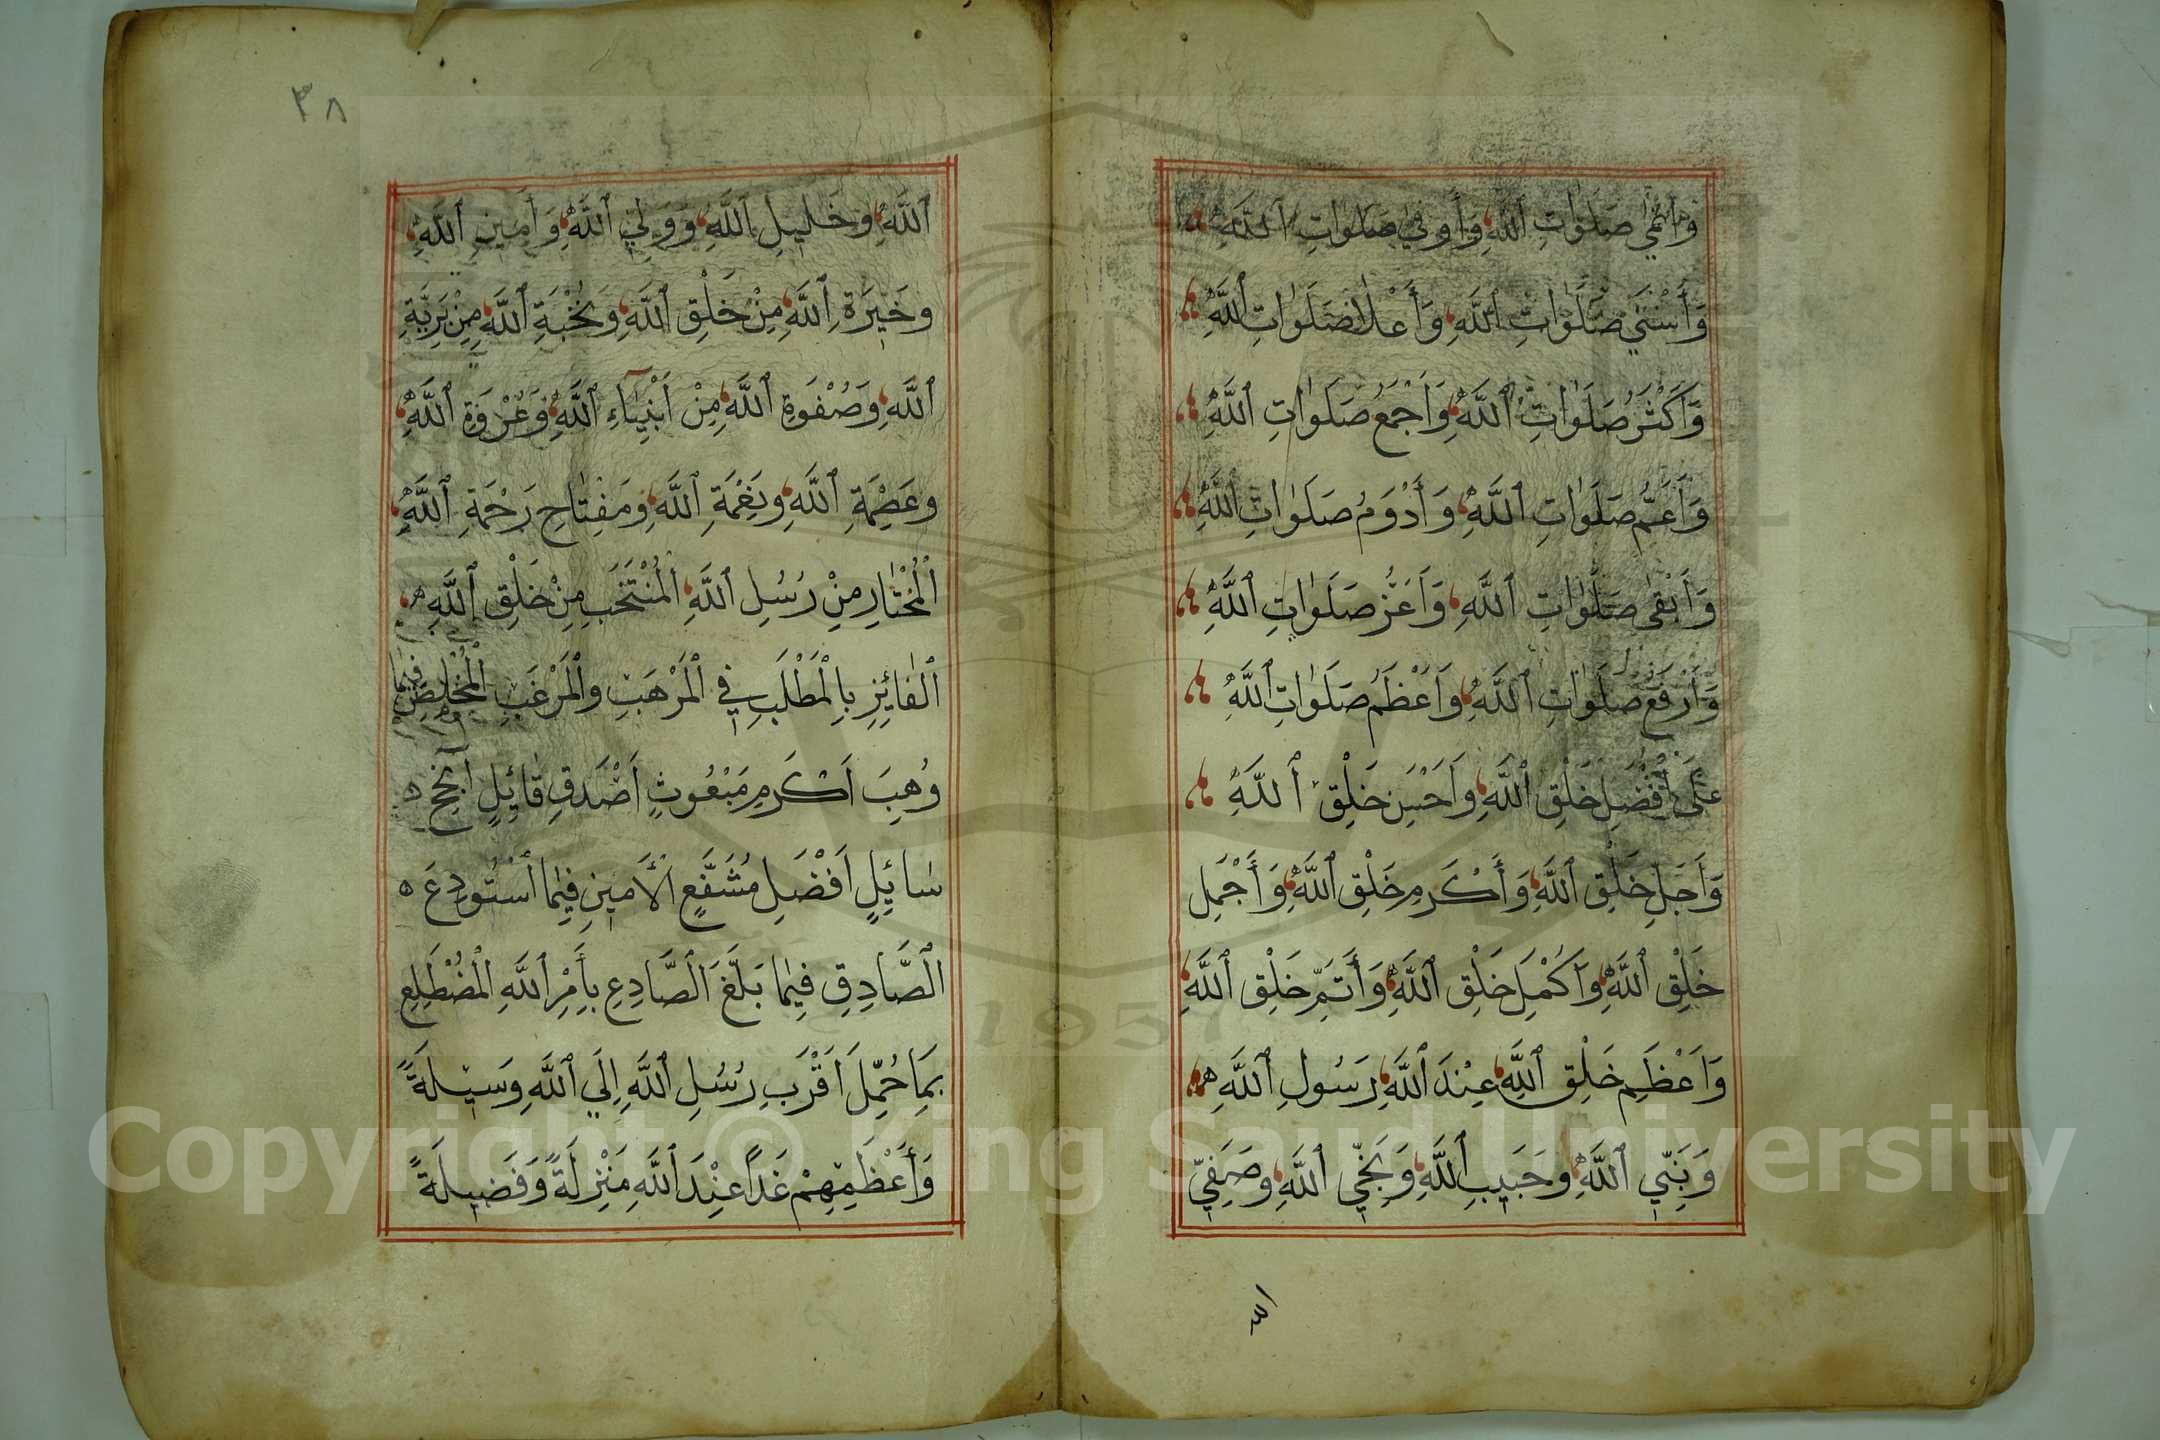 وَأَنْمَىٰ صَلَوَاتِ ٱللَّهِ وَأَوْفَىٰ صَلَوَاتِ ٱللَّهِ
وَأَسْنَىٰ صَلَوَاتِ ٱللَّهِ وَأَعْلَا صَلَوَاتِ ٱللَّهِ
وَأَكْثَرُ صَلَوَاتِ ٱللَّهِ وَأَجْمَعُ صَلَوَاتِ ٱللَّهِ
وَأَعَمُّ صَلَوَاتِ ٱللَّهِ وَأَدْوَمُ صَلَوَاتِ ٱللَّهِ
وَأَبْقَىٰ صَلَوَاتِ ٱللَّهِ وَأَعَزُّ صَلَوَاتِ ٱللَّهِ
وَأَرْفَعُ صَلَوَاتِ ٱللَّهِ وَأَعْظَمُ صَلَوَاتِ ٱللَّهِ
عَلَىٰ أَفْضَلِ خَلْقِ ٱللَّهِ وَأَحْسَنِ خَلْقِ ٱللَّهِ
وَأَجَلِّ خَلْقِ ٱللَّهِ وَأَكْرَمِ خَلْقِ ٱللَّهِ وَأَجْمَلِ
خَلْقِ ٱللَّهِ وَأَكْمَلِ خَلْقِ ٱللَّهِ وَأَتَمِّ خَلْقِ ٱللَّهِ
وَأَعْظَمِ خَلْقِ ٱللَّهِ عِنْدَ ٱللَّهِ رَسُولِ ٱللَّهِ
وَنَبِيِّ ٱللَّهِ وَحَبِيبِ ٱللَّهِ وَنَجِيِّ ٱللَّهِ وَصَفِيِّ
الله
٣٨
ٱللَّهِ وَخَلِيلِ ٱللَّهِ وَوَلِيِّ ٱللَّهِ وَأَمِينِ ٱللَّهِ
وَخِيَرَةِ ٱللَّهِ مِنْ خَلْقِ ٱللَّهِ وَنُخْبَةِ ٱللَّهِ مِنْ بَرِيَّةِ
ٱللَّهِ وَصُفْوَةِ ٱللَّهِ مِنْ أَنْبِيَآءِ ٱللَّهِ وَعُرْوَةِ ٱللَّهِ
وَعِصْمَةِ ٱللَّهِ وَنِعْمَةِ ٱللَّهِ وَمِفْتَاحِ رَحْمَةِ ٱللَّهِ
ٱلْمُخْتَارِ مِنْ رُسُلِ ٱللَّهِ ٱلْمُنْتَخَبِ مِنْ خَلْقِ ٱللَّهِ
ٱلْفَائِزِ بِالْمَطْلَبِ فِي ٱلْمَرْهَبِ وَٱلْمَرْغَبِ ٱلْمُخْلَصِ فِيمَا
وُهِبَ أَكْرَمِ مَبْعُوثٍ أَصْدَقِ قَائِلٍ أَنْجَحِ
سَائِلٍ أَفْضَلِ مُشَفَّعٍ ٱلْأَمِينِ فِيمَا ٱسْتُودِعَ
ٱلصَّادِقِ فِيمَا بَلَّغَ ٱلصَّادِعِ بِأَمْرِ ٱللَّهِ ٱلْمُضْطَلِعِ
بِمَا حُمِّلَ أَقْرَبِ رُسُلِ ٱللَّهِ إِلَى ٱللَّهِ وَسِيلَةً
وَأَعْظَمِهِمْ غَدًا عِنْدَ ٱللَّهِ مَنْزِلَةً وَفَضِيلَةً
1957
Copyright © King Saud University